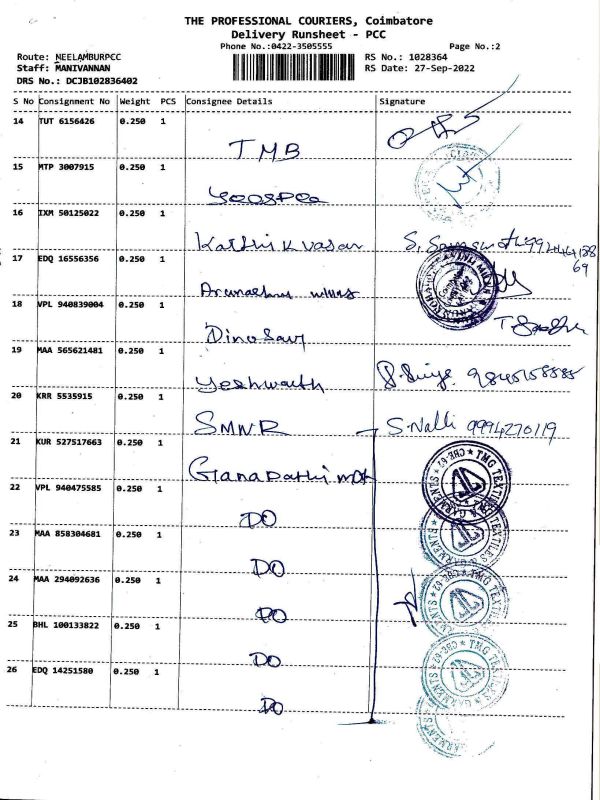 THE PROFESSIONAL COURIERS, Coimbatore
Delivery Runsheet - PCC
Phone No.:0422-3505555 Page No.:2
Route: NEELAMBURPCC RS No.: 1028364
Staff: MANIVANNAN RS Date: 27-Sep-2022
DRS No.: DCJB102836402
S No Consignment No Weight PCS Consignee Details Signature
14 TUT 6156426 0.250 1
TMB
15 MTP 3007915 0.250 1
16 IXM 50125022 0.250 1
Karthik Vasan
17 EDQ 16556356 0.250 1
69
18 VPL 940839004 0.250 1
Dinosaur
19 MAA 565621481 0.250 1
Yeshwanth
20 KRR 5535915 0.250 1
SMNR S. Nalli 9994270119
21 KUR 527517663 0.250 1
Ganapathi
22 VPL 940475585 0.250 1
DO
23 MAA 858304681 0.250 1
DO
24 MAA 294092636 0.250 1
DO
25 BHL 100133822 0.250 1
DO
26 EDQ 14251580 0.250 1
DO
TMG TEXTILES & GARMENTS CBE-62